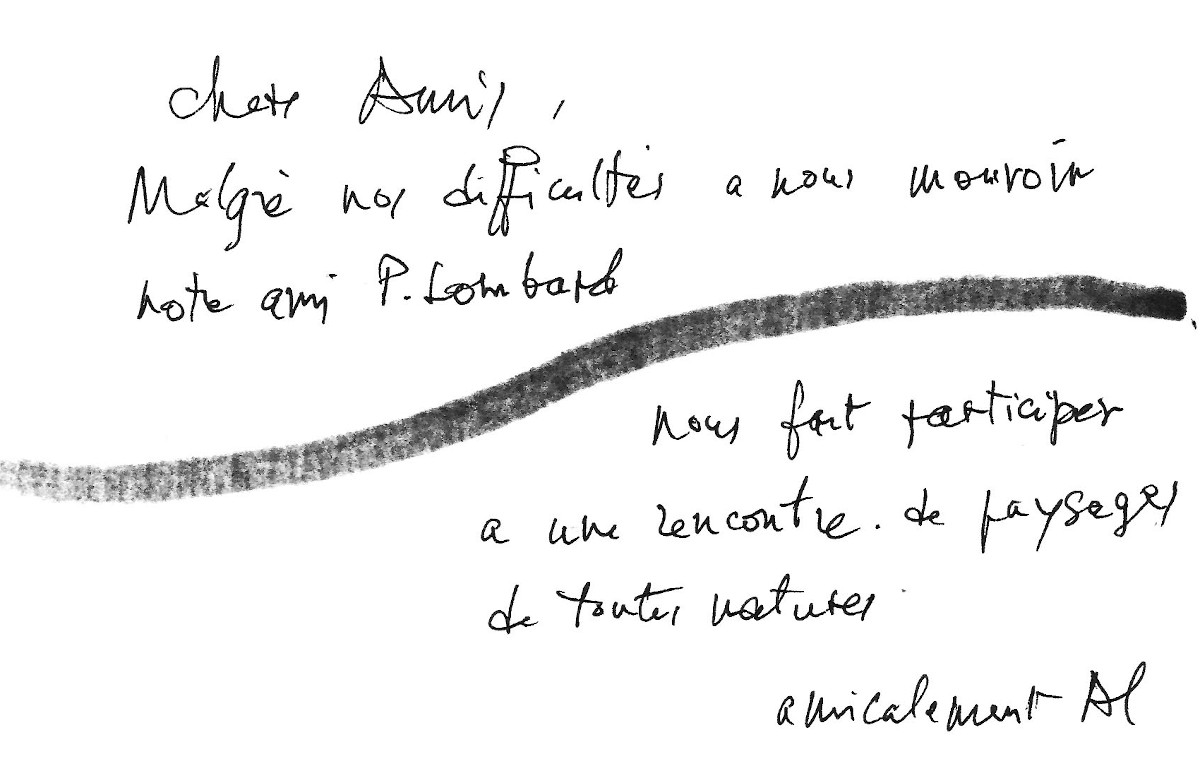 chers Amis,
Malgré nos difficultés a nous mouvoir
note ami P. Lombard
nous fait participer
a une rencontre. de paysages
de toutes natures
amicalement Al